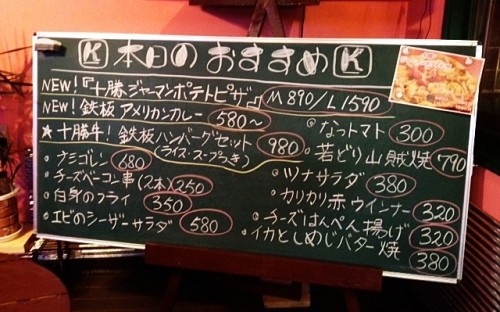 K 本日のおすすめ K
NEW!『十勝ジャーマンポテトピザ』 M890/L1590
NEW! 鉄板 アメリカンカレー 580～
★十勝牛! 鉄板ハンバーグセット 980
(ライス・スープつき)
・ナシゴレン 680
・チーズベーコン串(2本) 250
・白身のフライ 350
・エビのシーザーサラダ 580
・なっトマト 300
・若どり山賊焼 790
・ツナサラダ 380
・カリカリ赤ウインナー 320
・チーズはんぺん揚げ 320
・イカとしめじバター焼 380